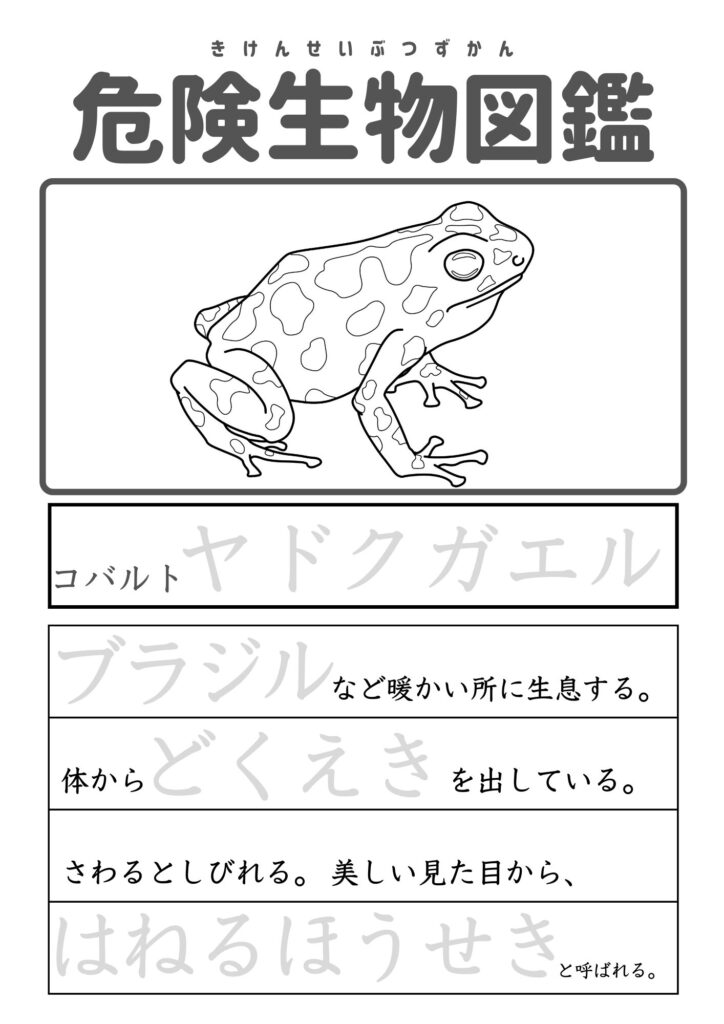 きけんせいぶつずかん
危険生物図鑑
コバルトヤドクガエル
ブラジルなど暖かい所に生息する。
体からどくえきを出している。
さわるとしびれる。美しい見た目から、
はねるほうせきと呼ばれる。